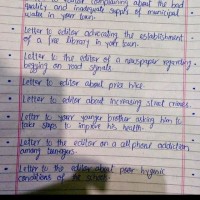 Letter to editor complaining about the bad
quality and inadequate supply of municipal
water in your town.
Letter to editor advocating the establishment
of a free library in your town.
Letter to the editor of a newspaper regarding
begging on road signals.
Letter to editor about price hike.
Letter to editor about increasing street crimes.
Letter to your younger brother asking him to
take steps to improve his health.
Letter to the editor on a cell phone addiction
among teenagers.
Letter to the editor about poor hygienic
conditions of the